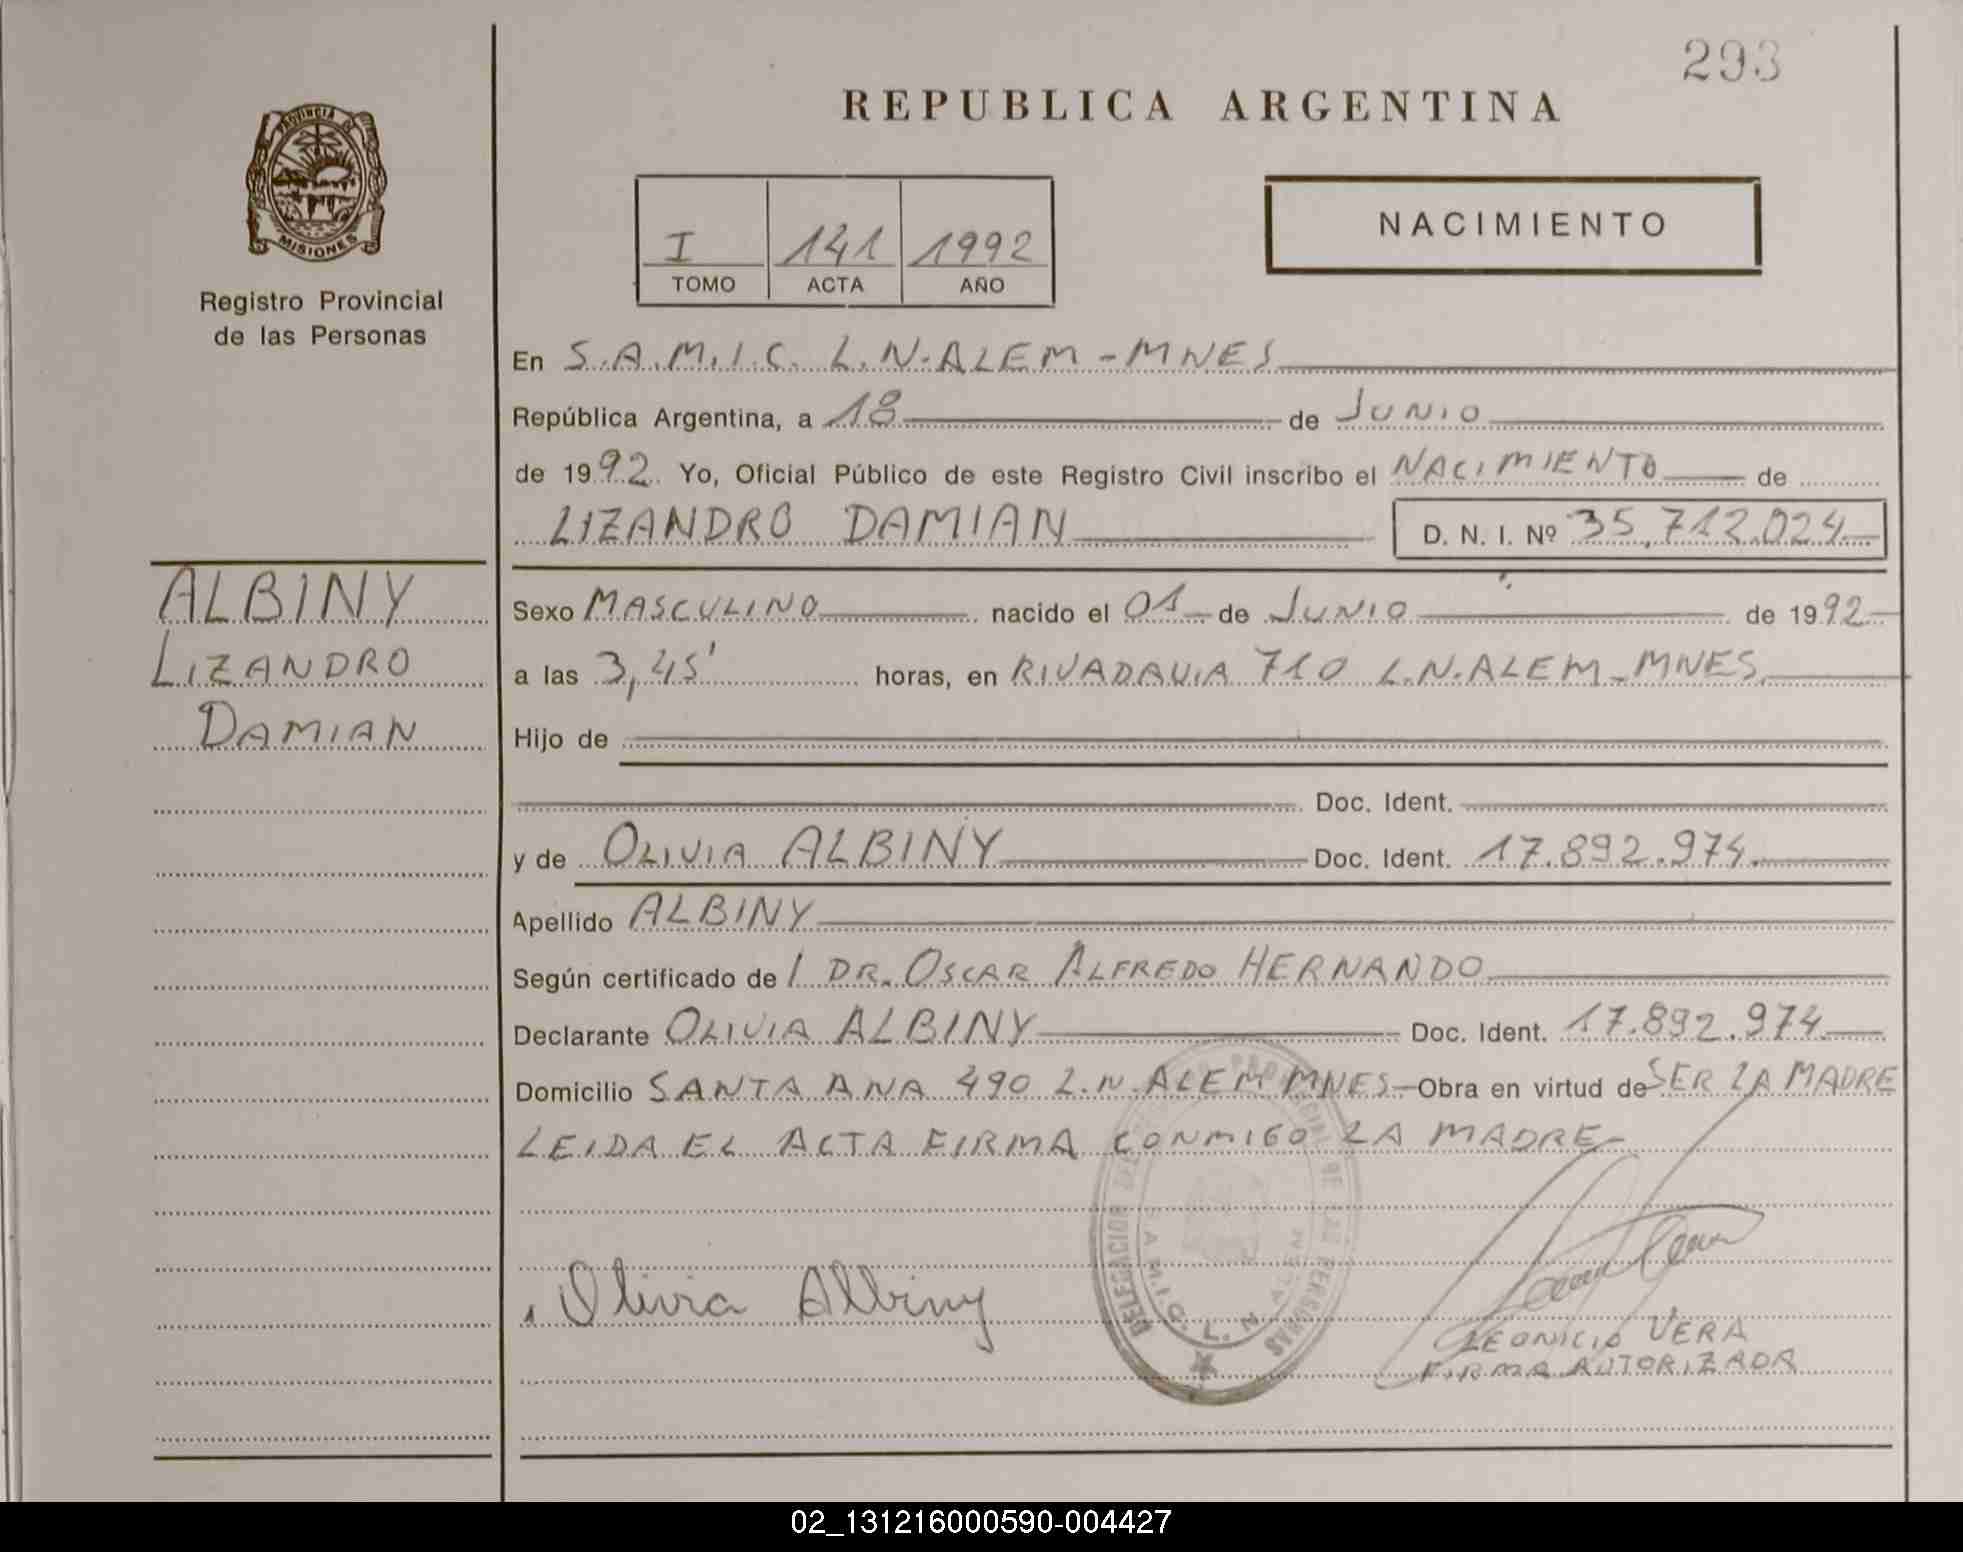 293
REPUBLICA ARGENTINA
PROVINCIA DE
MISIONES
Registro Provincial
de las Personas
I 141 1992
TOMO ACTA AÑO
NACIMIENTO
En S.A.M.I.C. L.N.ALEM - MNES
República Argentina, a 18 de JUNIO
de 1992. Yo, Oficial Público de este Registro Civil inscribo el NACIMIENTO de
LIZANDRO DAMIAN D. N. I. Nº 35.712.024
ALBINY
LIZANDRO
DAMIAN
Sexo MASCULINO nacido el 01 de JUNIO de 1992
a las 3,45' horas, en RIVADAVIA 710 L.N.ALEM - MNES
Hijo de
Doc. Ident.
y de OLIVIA ALBINY Doc. Ident. 17.892.974
Apellido ALBINY
Según certificado de / DR. OSCAR ALFREDO HERNANDO
Declarante OLIVIA ALBINY Doc. Ident. 17.892.974
Domicilio SANTA ANA 490 L.N.ALEM MNES - Obra en virtud de SER LA MADRE
LEIDA EL ACTA FIRMA CONMIGO LA MADRE
Olivia Albiny
DELEGACION DE PERSONAS
S.A.M.I.C. L. N. ALEM
LEONICIO VERA
FIRMA AUTORIZADA
02_131216000590-004427